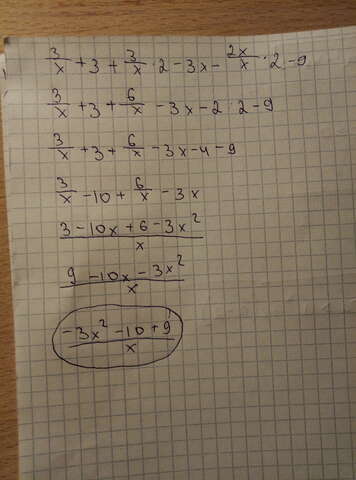 3/x + 3 + 3/x · 2 - 3x - 2x/x · 2 - 9
3/x + 3 + 6/x - 3x - 2 · 2 - 9
3/x + 3 + 6/x - 3x - 4 - 9
3/x - 10 + 6/x - 3x
3 - 10x + 6 - 3x² / x
9 - 10x - 3x² / x
-3x² - 10 + 9 / x